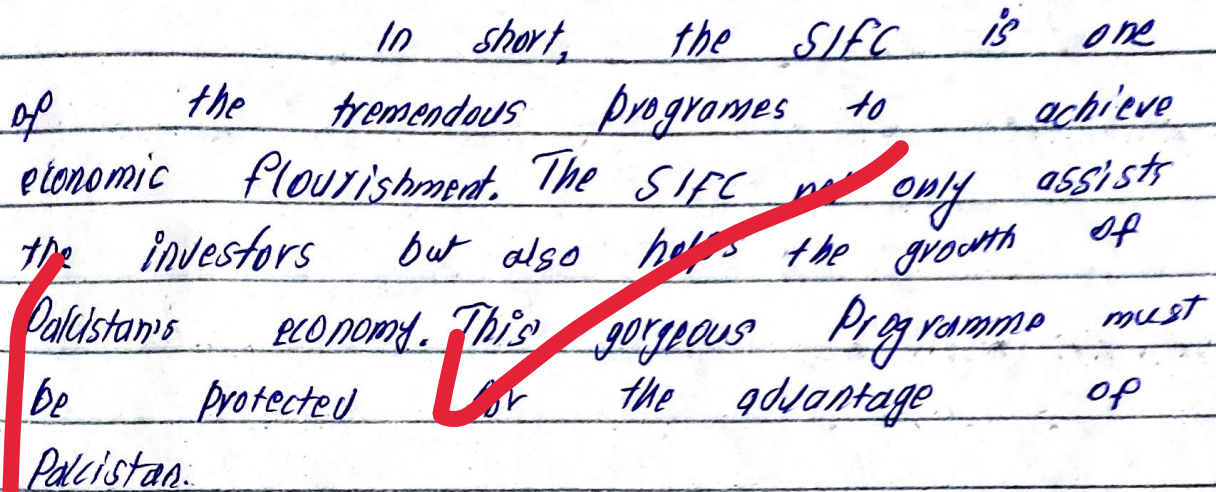 In short, the SIFC is one
of the tremendous programes to achieve
economic flourishment. The SIFC not only assists
the investors but also helps the growth of
Pakistan's economy. This gorgeous Programme must
be protected for the advantage of
Pakistan.